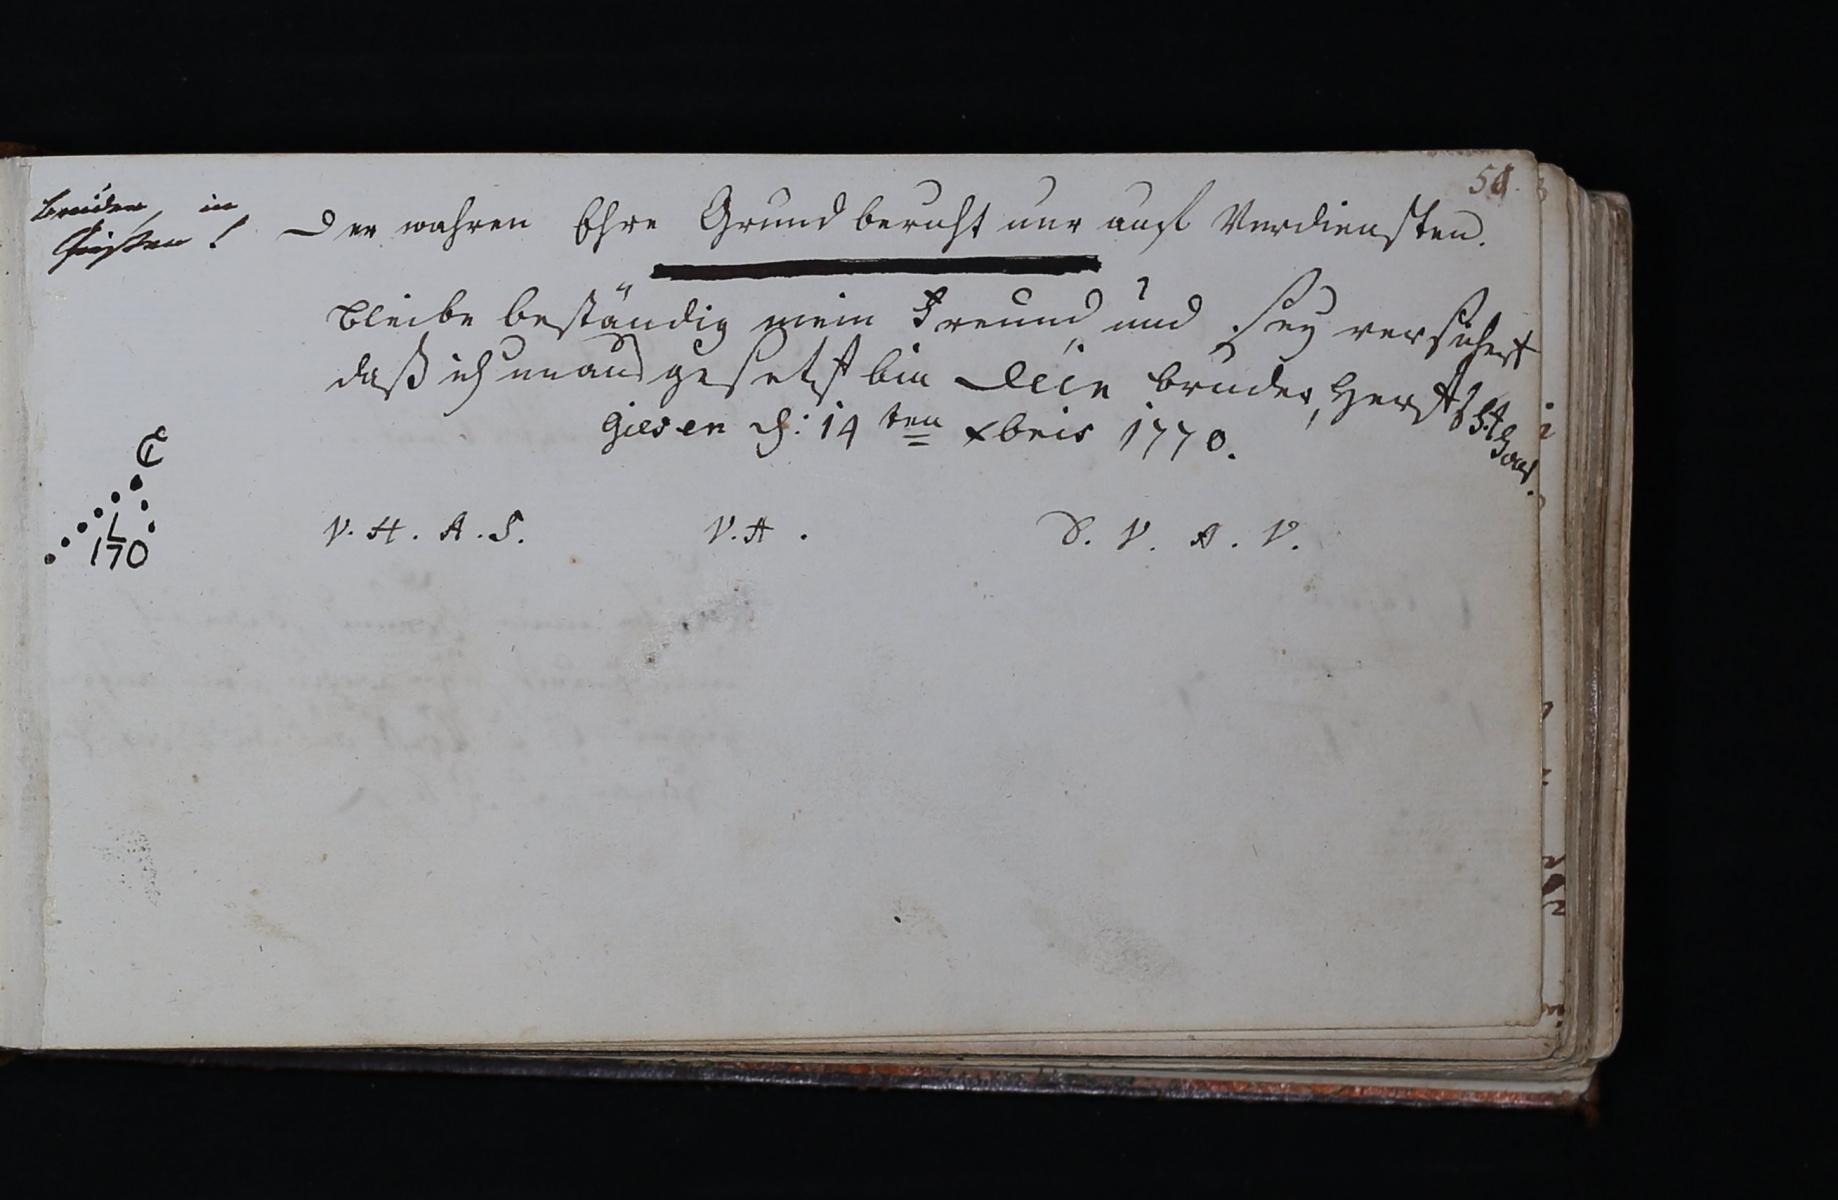 51.
Bruder, in
Gießen!
Der wahren Ehre Grund beruht nur auf Verdiensten.
Bleibe beständig mein Freund, und sey versichert
daß ich unausgesetzt bin Dein Bruder, Herst
Giesen d: 14 ten Xbris 1770.
C
L
170
V. H. A. S. V. A. S. V. A. V.